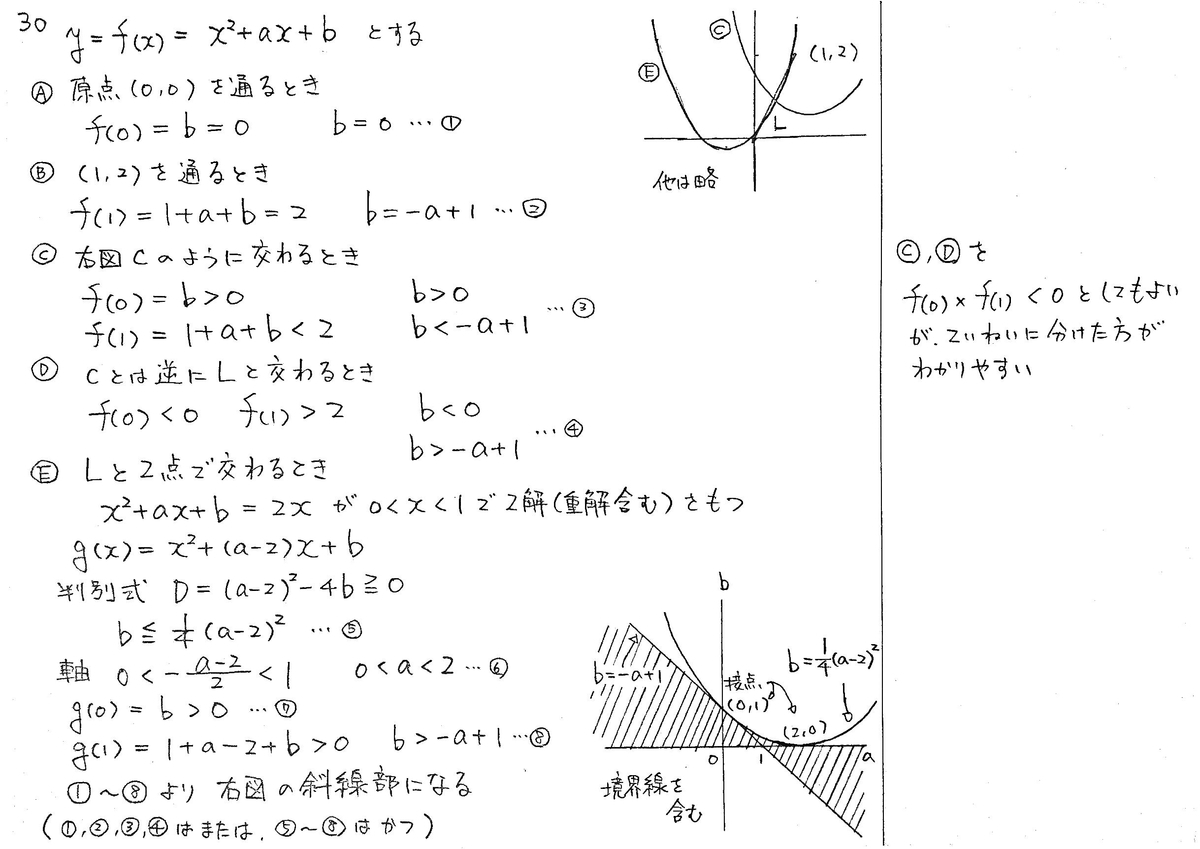 30 y = f(x) = x²+ax+b とする
Ⓐ 原点(0,0)を通るとき
f(0) = b = 0 b = 0 … ①
Ⓑ (1,2)を通るとき
f(1) = 1+a+b = 2 b = -a+1 … ②
Ⓒ 右図Cのように交わるとき
f(0) = b > 0 b > 0
f(1) = 1+a+b < 2 b < -a+1 … ③
Ⓓ Cとは逆にLと交わるとき
f(0) < 0 f(1) > 2 b < 0
b > -a+1 … ④
Ⓔ Lと2点で交わるとき
x²+ax+b = 2x が 0<x<1で2解(重解含む)をもつ
g(x) = x²+(a-2)x+b
判別式 D = (a-2)²-4b ≧ 0
b ≦ 1/4 (a-2)² … ⑤
軸 0 < -(a-2)/2 < 1 0 < a < 2 … ⑥
g(0) = b > 0 … ⑦
g(1) = 1+a-2+b > 0 b > -a+1 … ⑧
①〜⑧より 右図の斜線部になる
(①,②,③,④はまたは, ⑤〜⑧はかつ)
Ⓒ
Ⓔ
(1,2)
L
他は略
Ⓒ,Ⓓを
f(0)×f(1)<0としてもよい
が、ていねいに分けた方が
わかりやすい
b
b=1/4(a-2)²
b=-a+1
接点
(0,1)
(2,0)
0
1
a
境界線を
含む